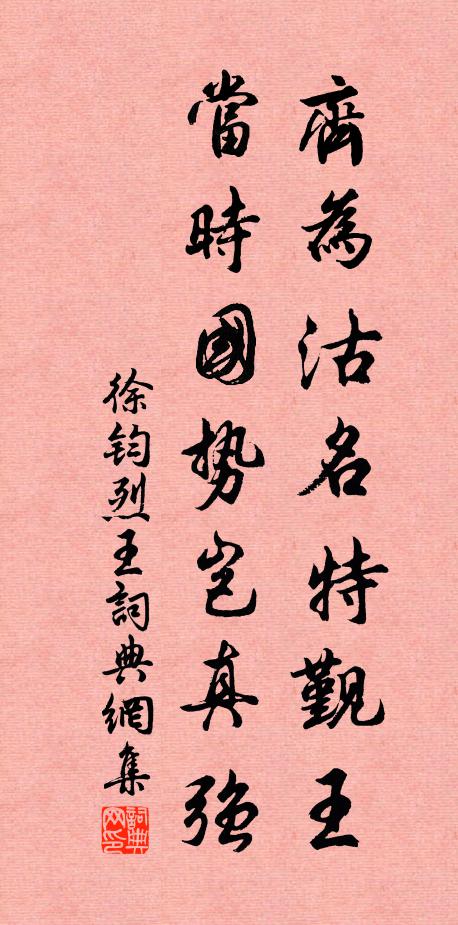 齊為沽名特覲王
當時國勢豈真強
徐鈞烈王詞典網集
詞典网印